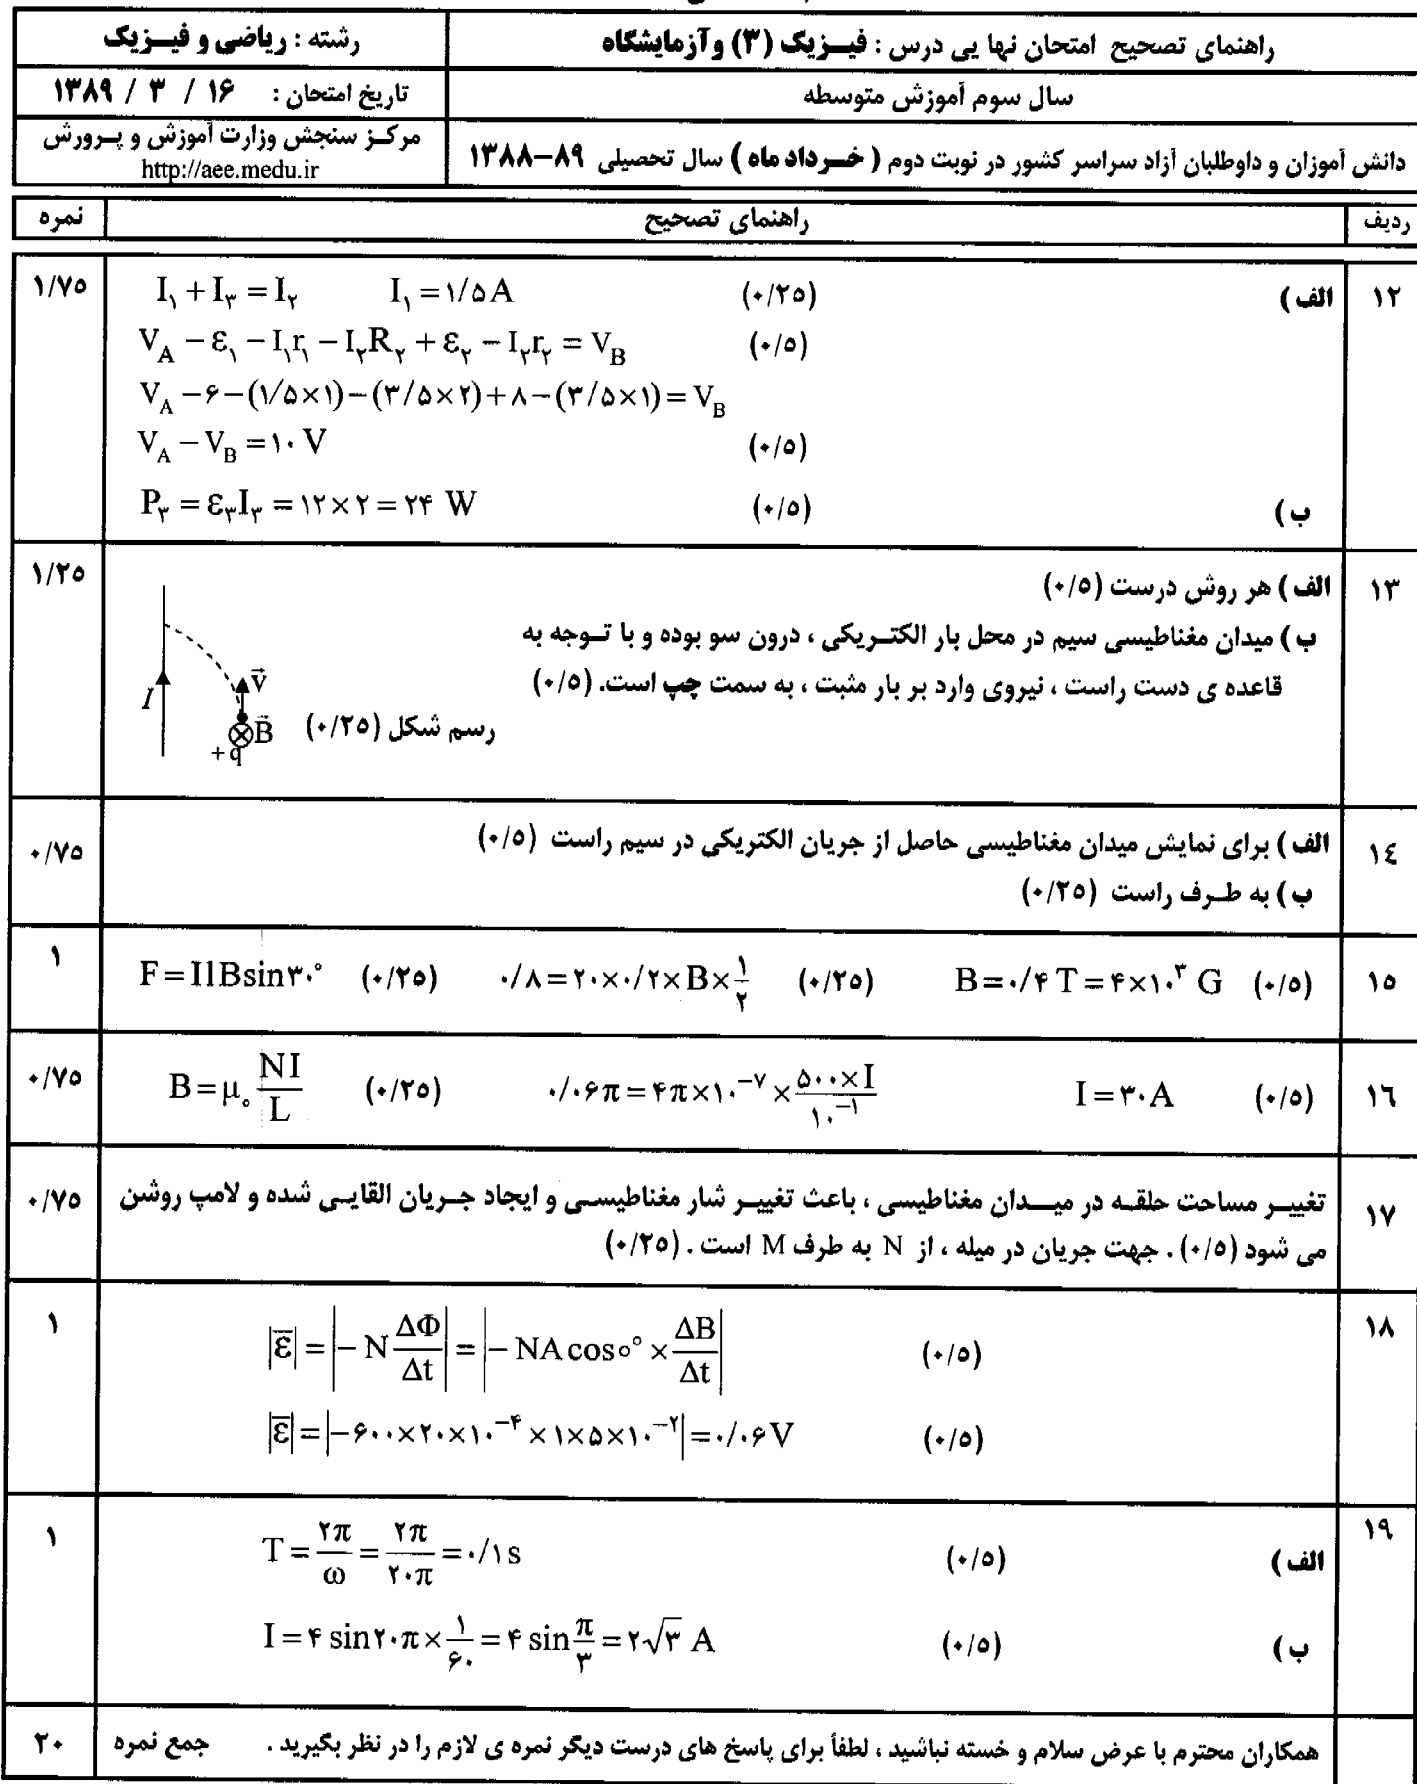 راهنمای تصحیح امتحان نها یی درس : فیــزیک (۳) وآزمایشگاه
رشته : ریاضی و فیــزیک
سال سوم آموزش متوسطه
تاریخ امتحان : ۱۶ / ۳ / ۱۳۸۹
دانش آموزان و داوطلبان آزاد سراسر کشور در نوبت دوم ( خــرداد ماه ) سال تحصیلی ۸۹–۱۳۸۸
مرکـز سنجش وزارت آموزش و پـرورش
http://aee.medu.ir
ردیف راهنمای تصحیح نمره
۱۲ الف ) I₁ + I₃ = I₂ I₁ = ۱/۵ A (۰/۲۵) ۱/۷۵
V_A − ε₁ − I₁r₁ − I₂R₂ + ε₂ − I₂r₂ = V_B (۰/۵)
V_A − ۶ − (۱/۵×۱) − (۳/۵×۲) + ۸ − (۳/۵×۱) = V_B
V_A − V_B = ۱۰ V (۰/۵)
ب ) P₃ = ε₃I₃ = ۱۲×۲ = ۲۴ W (۰/۵)
۱۳ الف ) هر روش درست (۰/۵) ۱/۲۵
ب ) میدان مغناطیسی سیم در محل بار الکتـریکی ، درون سو بوده و با تـوجه به
قاعده ی دست راست ، نیروی وارد بر بار مثبت ، به سمت چپ است. (۰/۵)
رسم شکل (۰/۲۵)
I v⃗ B⃗ +q
۱٤ الف ) برای نمایش میدان مغناطیسی حاصل از جریان الکتریکی در سیم راست (۰/۵) ۰/۷۵
ب ) به طـرف راست (۰/۲۵)
۱۵ F = IlBsin۳۰° (۰/۲۵) ۰/۸ = ۲۰×۰/۲×B×۱/۲ (۰/۲۵) B = ۰/۴ T = ۴×۱۰³ G (۰/۵) ۱
۱٦ B = μ₀ NI/L (۰/۲۵) ۰/۰۶π = ۴π×۱۰⁻⁷ × ۵۰۰×I/۱۰⁻¹ I = ۳۰ A (۰/۵) ۰/۷۵
۱۷ تغییــر مساحت حلقـه در میــدان مغناطیسی ، باعث تغییــر شار مغناطیسـی و ایجاد جـریان القایـی شده و لامپ روشن ۰/۷۵
می شود (۰/۵) . جهت جریان در میله ، از N به طرف M است . (۰/۲۵)
۱۸ |ε̅| = |−N ΔΦ/Δt| = |−NA cos۰° × ΔB/Δt| (۰/۵) ۱
|ε̅| = |−۶۰۰×۲۰×۱۰⁻⁴×۱×۵×۱۰⁻²| = ۰/۰۶ V (۰/۵)
۱۹ الف ) T = ۲π/ω = ۲π/۲۰π = ۰/۱ s (۰/۵) ۱
ب ) I = ۴ sin۲۰π × ۱/۶۰ = ۴ sin π/۳ = ۲√۳ A (۰/۵)
همکاران محترم با عرض سلام و خسته نباشید ، لطفاً برای پاسخ های درست دیگر نمره ی لازم را در نظر بگیرید . جمع نمره ۲۰